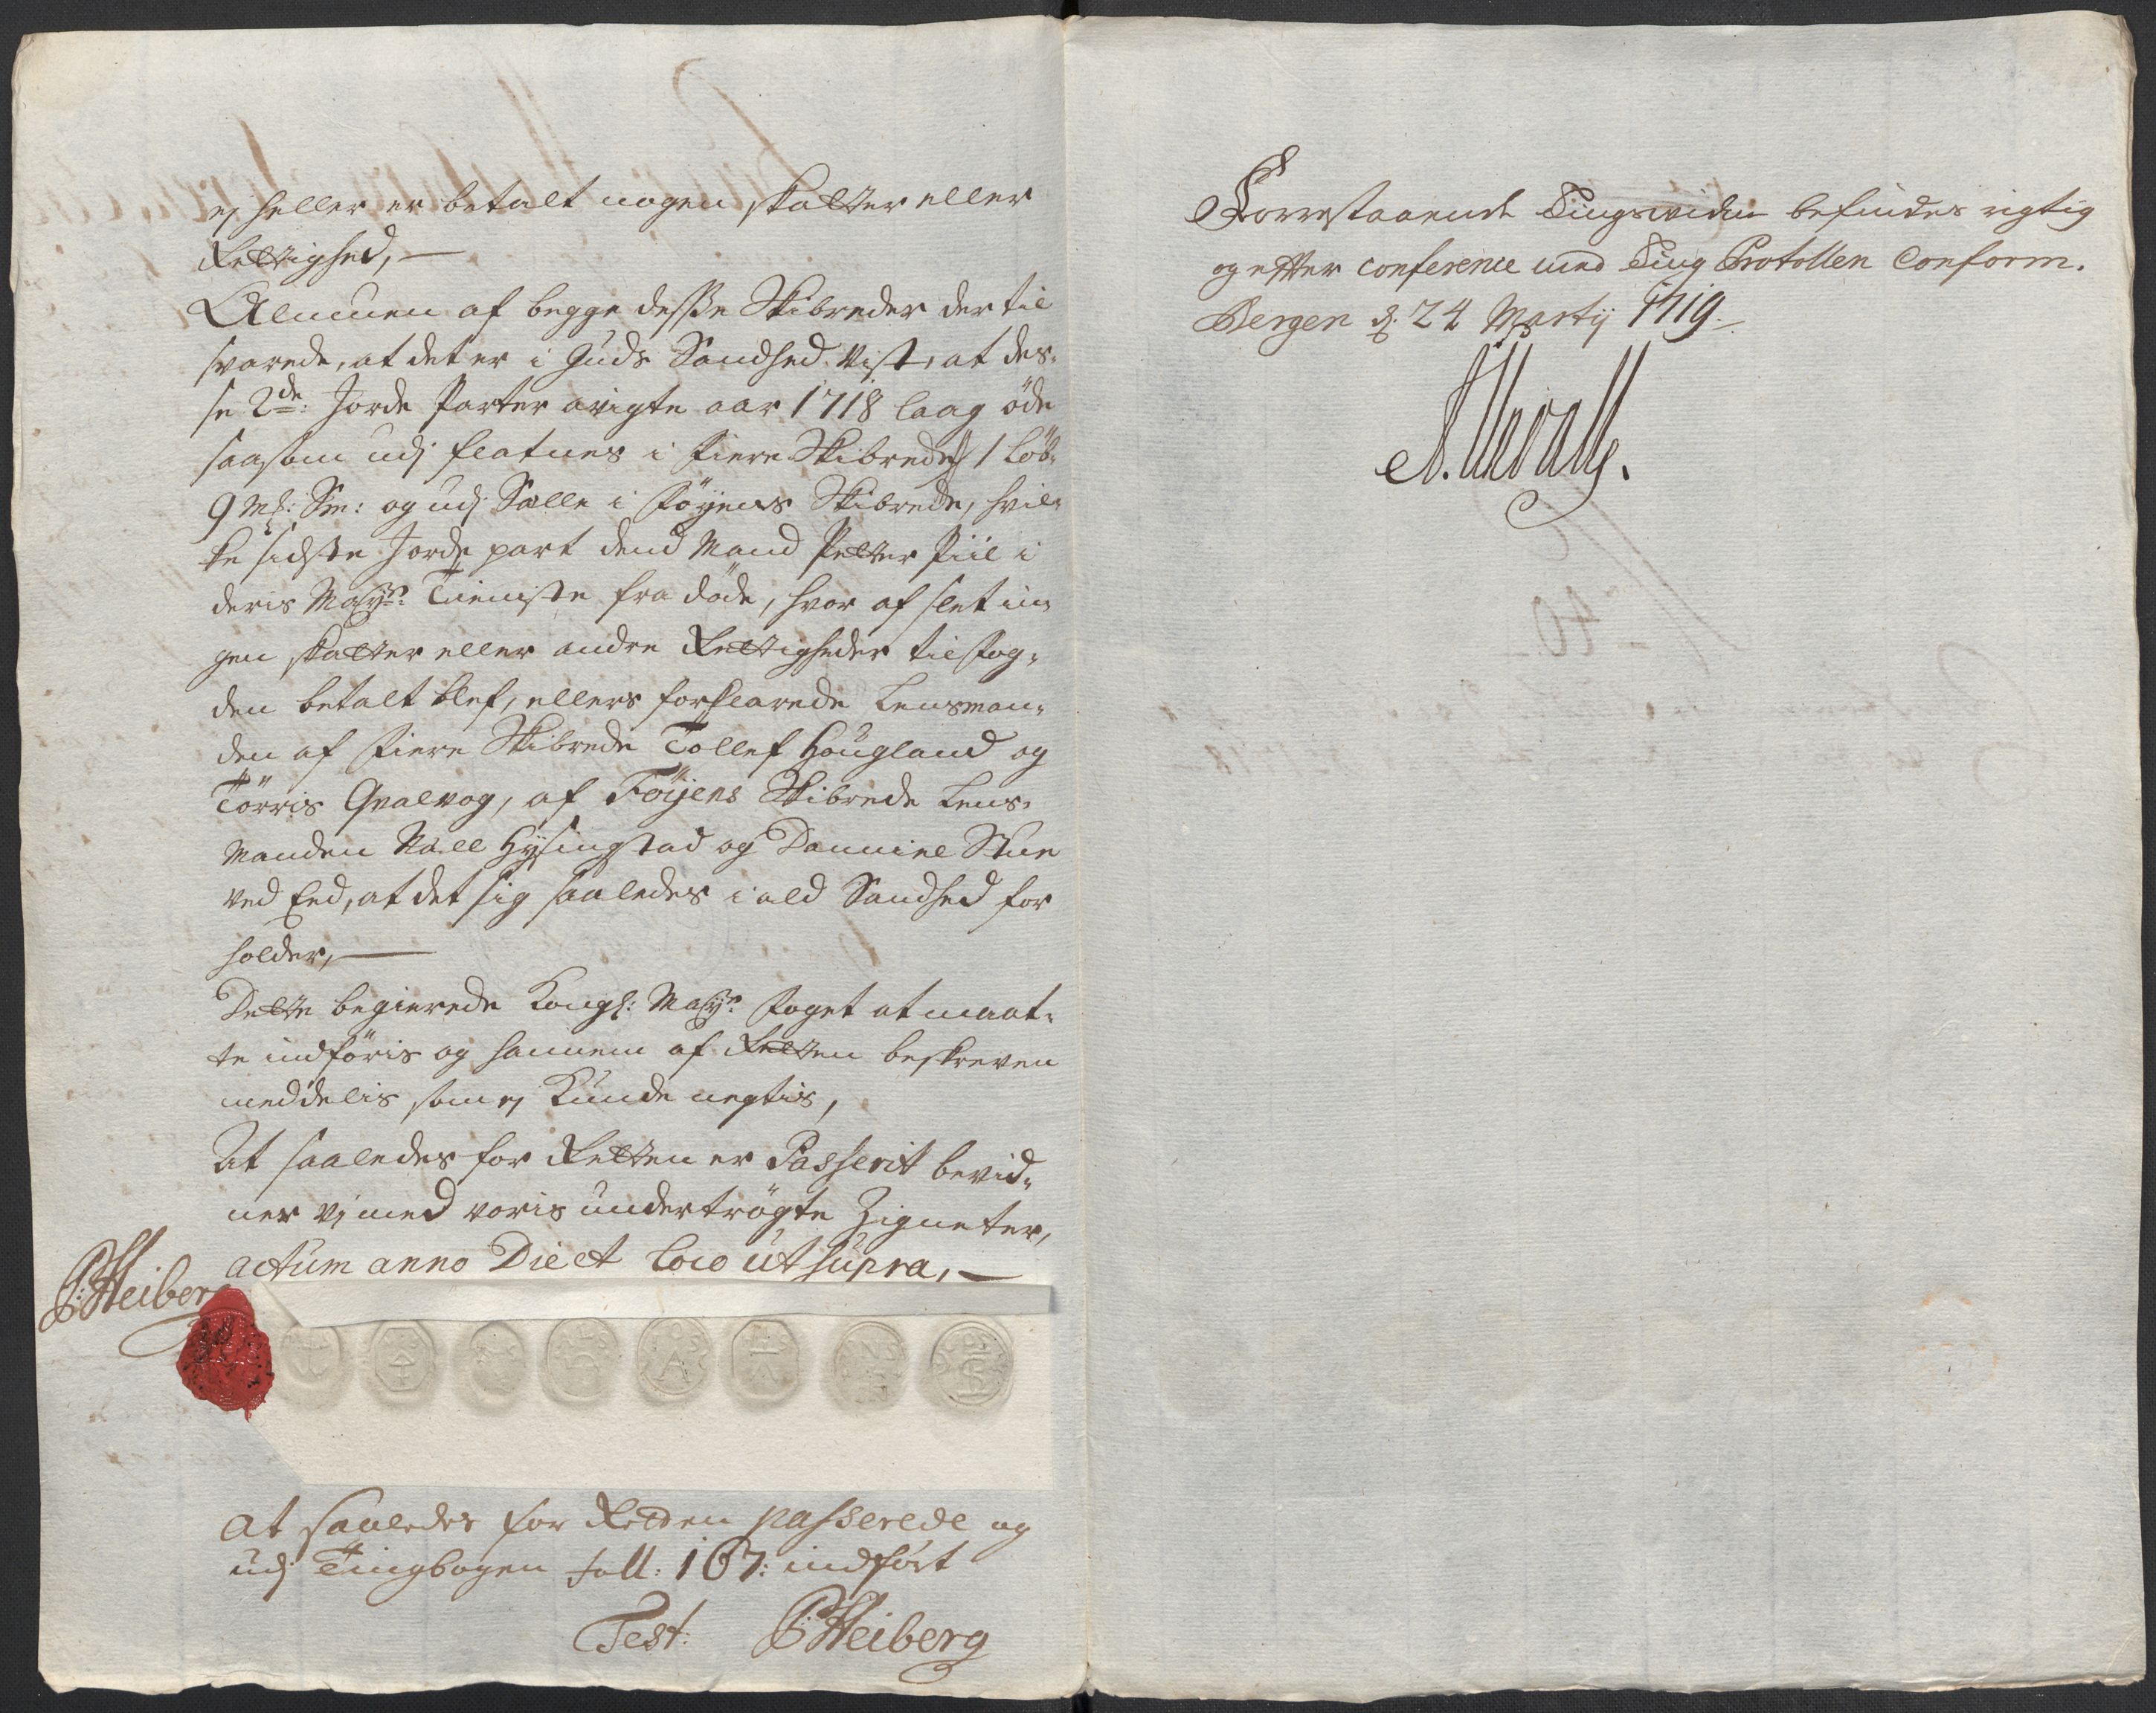 ej heller er betalt nogen skatter eller
Rettighed,
Almuen af begge desse Skibreder der til
svarede, at det er i Guds Sandhed vist, at des-
se 2de: Jorde Parter avigte aar 1718 laag øde
saasom udj flatnes i fiere Skibrede 1 Løb:
9 Mk: Sm: og udj Sælle i føyens Skibrede, hvil-
ke sidste Jorde part dend Mand Petter Piil i
deris Mayts: Tieniste fra døde, hvor af slet in-
gen skatter eller andre Rettigheder til fog-
den betalt blef, ellers forklarede Lensman-
den af fiere Skibrede Tollef Hougland og
Tørris Qvalvog, af Føyens Skibrede Lens-
Manden Hysingstad og Danniel Stue
ved Eed, at det sig saaledes i ald Sandhed for
holder,
Dette begierede Kongl: Mayts foget at maat-
te indføris og hannem af Retten beskreven
meddelis som ej Kunde negtis,
At saaledes for Retten er Passerit bevid-
ner vj med voris undertrøgte Zigneter,
actum anno Die et loco ut supra,
P: Heiberg
At saaledes for Retten passerede og
udj Tingbogen foll: 167: indført
Test: P: Heiberg
Forrestaaende Tingsvidne befindes rigtig
og efter conference med Ting Protollen Conform.
Bergen d: 24 Martij 1719.